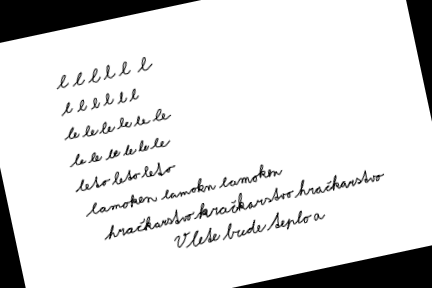 l l l l l l
l l l l l l
le le le le le le
le le le le le le
leto leto leto
lamoken lamokn lamoken
hračkarstvo hračkarstvo hračkarstvo
V lete bude teplo a